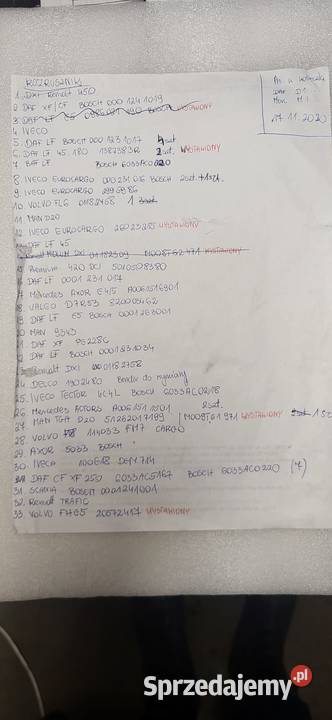 ROZRUSZNIKI
1. DXI Renault 450
2 DAF XF/CF BOSCH 000 1241019
3. DAF LF BOSCH WYSTAWIONY
4 IVECO
5. DAF LF BOSCH 000 1231017 4szt
6. DAF LF 45.180 1387383R 2szt. WYSTAWIONY
7. DAF LF BOSCH 6033AC0020
8. IVECO EUROCARGO 000231016 BOSCH 2szt +1szt.
9. IVECO EUROCARGO 2996986
10. VOLVO FL6 01182458 1
11. MAN D20
12 IVECO EUROCARGO WYSTAWIONY
DAF LF 45
01182304 M008T62471 WYSTAWIONY
15 Premium 420 DCI 5010508380
16 DAF LF 0001 231 017
17 Mercedes AXOR E4/5 A0061516901
18. VALEO D7R53 8200
19 DAF LF 65 BOSCH 0001263001
20 MAN 9343
21 DAF XF PS228C
22 DAF LF BOSCH 0001231034
23 Renault DXI 01182758
24 DELCO 1902480 Bendix do wymiany
25. IVECO TECTOR 6C4L BOSCH 6033AC0218
26 Mercedes ACTORS A0061511501 2szt.
27 MAN TGA D20 51262017199 M009T61971 WYSTAWIONY 1szt
28 VOLVO 114033 FM7 CARGO
29. AXOR 5033 BOSCH
30. IVECO 100618
DAF CF XF 250 6033AC5167 BOSCH 6033AC0220 (4)
31. SCANIA BOSCH 0001241001
32. Renault TRAFIC
33. VOLVO FH65 20572417 WYSTAWIONY
DAF D1
MAN M1
14.11.2020
Sprzedajemy.pl